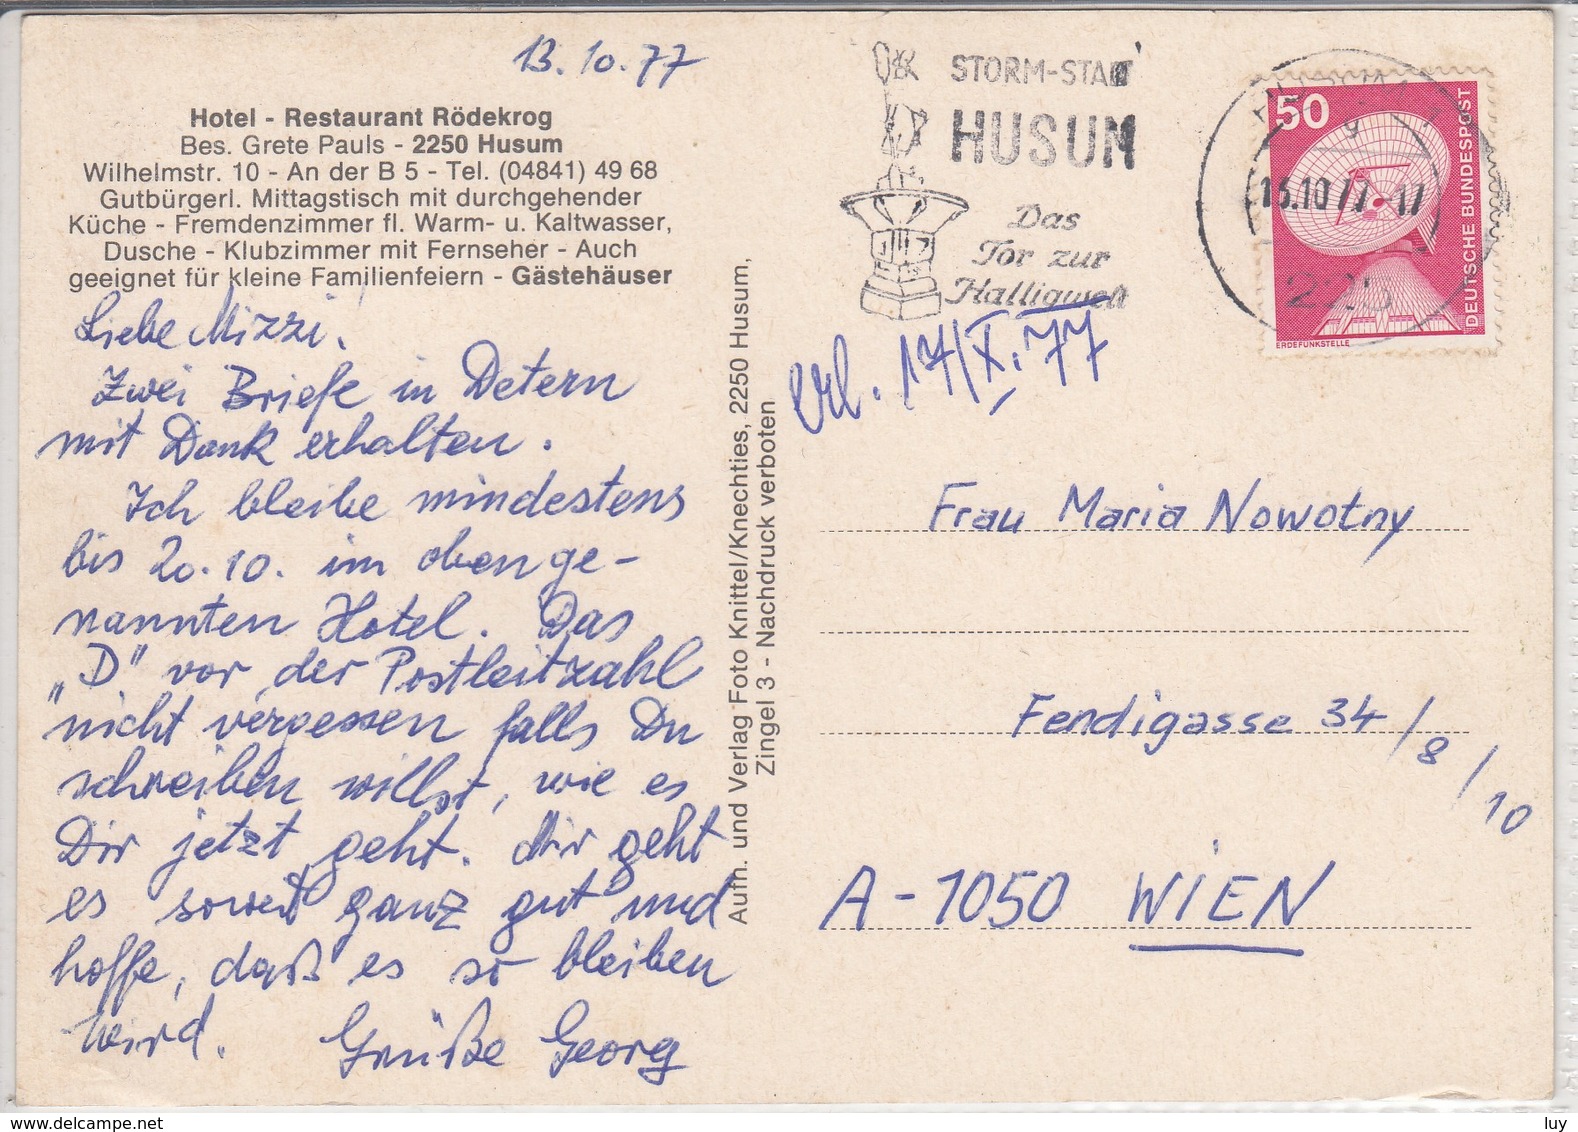 13.10.77
Hotel - Restaurant Rödekrog
Bes. Grete Pauls - 2250 Husum
Wilhelmstr. 10 - An der B 5 - Tel. (04841) 49 68
Gutbürgerl. Mittagstisch mit durchgehender
Küche - Fremdenzimmer fl. Warm- u. Kaltwasser,
Dusche - Klubzimmer mit Fernseher - Auch
geeignet für kleine Familienfeiern - Gästehäuser
Liebe Mizzi!
Zwei Briefe in Detern
mit Dank erhalten.
Ich bleibe mindestens
bis 20.10. im obenge-
nannten Hotel. Das
„D" vor der Postleitzahl
nicht vergessen falls Du
schreiben willst, wie es
Dir jetzt geht. Mir geht
es soweit ganz gut und
hoffe, daß es so bleiben
wird. Grüße Georg
Aufn. und Verlag Foto Knittel/Knechties, 2250 Husum,
Zingel 3 - Nachdruck verboten
STORM-STADT
HUSUM
Das
Tor zur
Halligwelt
13.10.77-17
50
DEUTSCHE BUNDESPOST
ERDEFUNKSTELLE
erl. 17/X.77
Frau Maria Nowotny
Fendigasse 34/8/10
A-1050 WIEN
luy